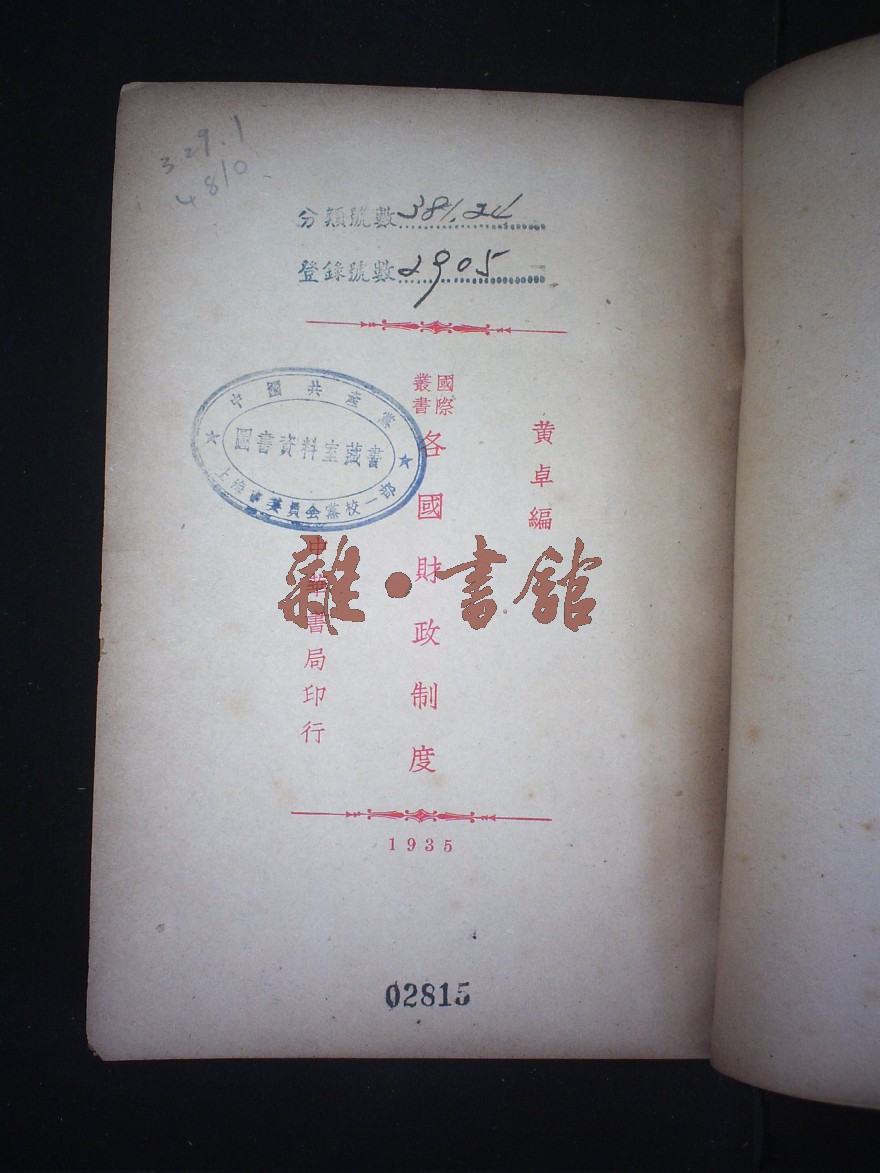 329.1
4810
分類號數 381.24
登錄號數 2905
黄卓編
國際
叢書
各國財政制度
中華書局印行
1935
中國共產黨
圖書資料室藏書
上海市委員會黨校一部
雜·書館
02815